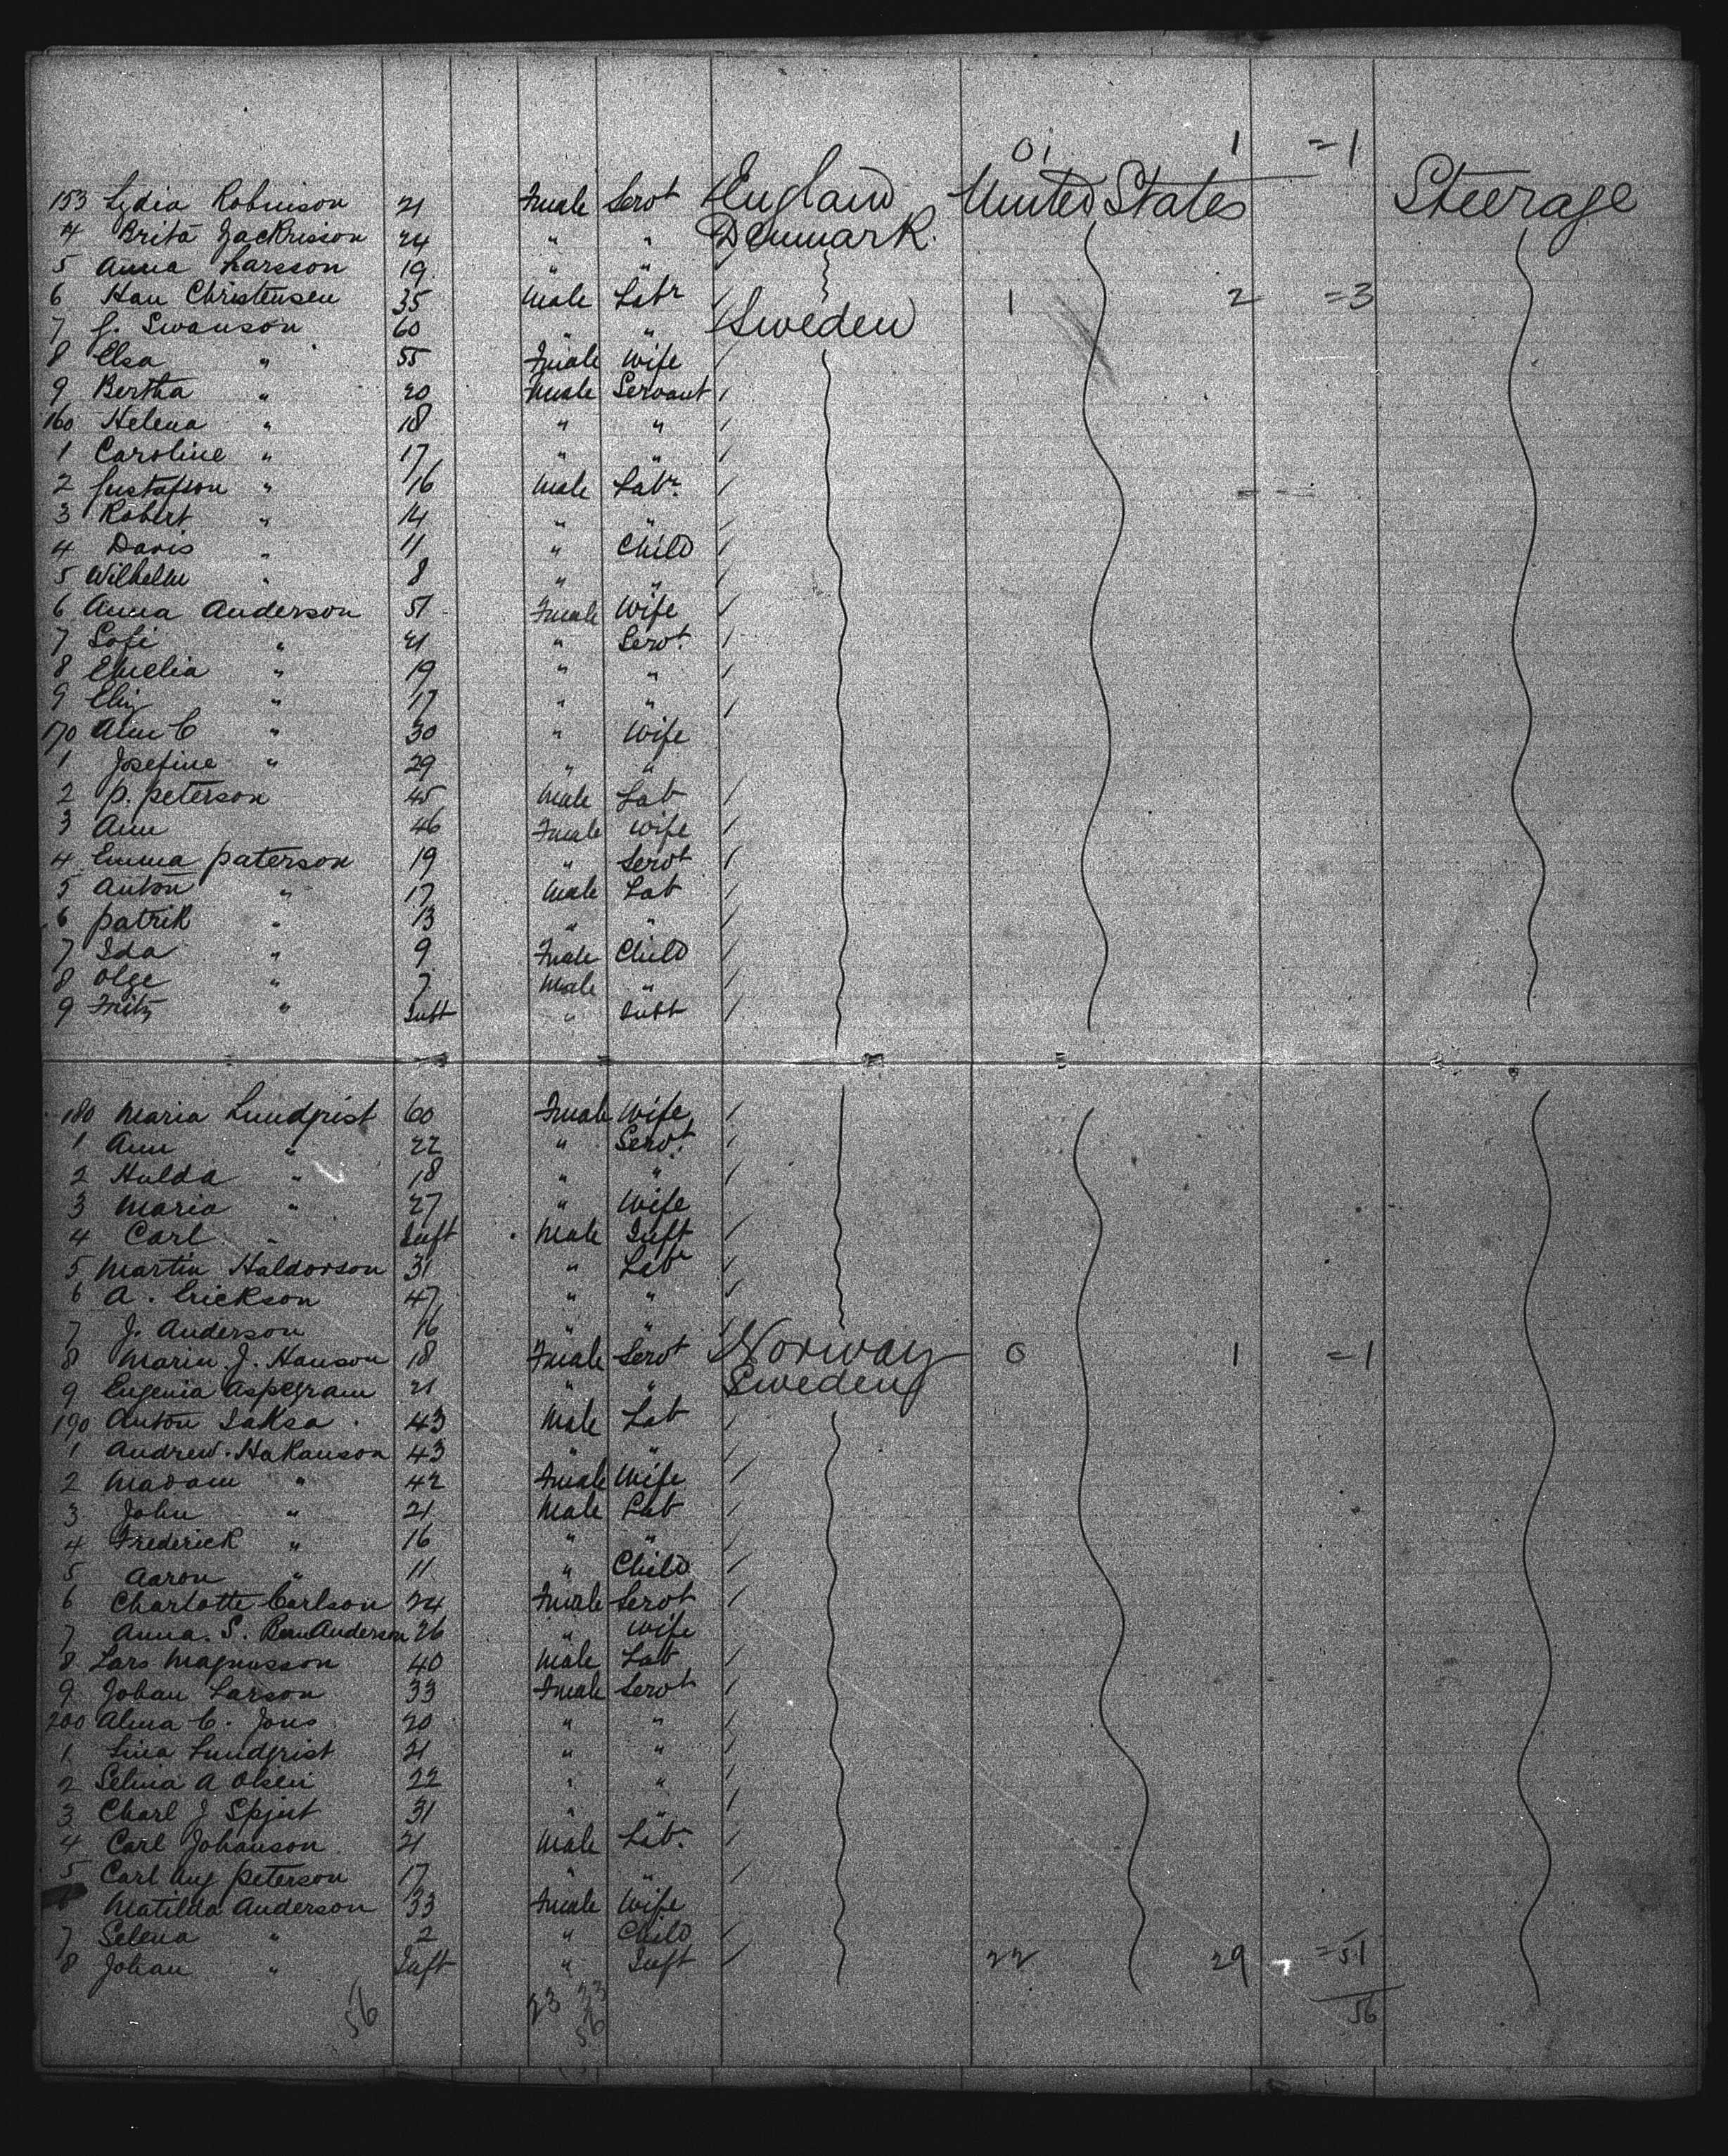 01 1 =1
153 Lydia Robinson 21 Female Servt England United States Steerage
4 Brita Jackrisson 24 " " Denmark
5 Anna Larsson 19 " "
6 Han Christensen 35 Male Labr 1 2 =3
7 G. Swanson 60 " " Sweden
8 Elsa " 55 Female Wife
9 Bertha " 20 Female Servant
160 Helena " 18 " "
1 Caroline " 17 " "
2 Gustafson " 16 Male Labr.
3 Robert " 14 " "
4 Davis " 11 " Child
5 Wilhelm " 8 " "
6 Anna Anderson 51 Female Wife
7 Sofi " 21 " Servt.
8 Emelia " 19 " "
9 Eliz " 17 " "
170 Ann C " 30 " Wife
1 Josefine " 29 " "
2 P. Peterson 45 Male Lab
3 Ann 46 Female Wife
4 Emma Paterson 19 " Servt
5 Anton " 17 Male Lab
6 Patrik " 13 " "
7 Ida " 9 Female Child
8 Olge " 7 Male "
9 Fritz " Inft " Inft
180 Maria Lundqrist 60 Female Wife
1 Ann " 22 " Servt.
2 Hulda " 18 " "
3 Maria " 27 " Wife
4 Carl " Inft Male Inft
5 Martin Haldorson 31 " Lab
6 A. Erickson 47 " "
7 J. Anderson 16 " "
8 Marin. J. Hanson 18 Female Servt Norway 0 1 =1
9 Eugenia Aspegram 21 " " Sweden
190 Anton Isaksa 43 Male Lab
1 Andrew. Hakanson 43 " "
2 Madam " 42 Female Wife
3 John " 21 Male Lab
4 Frederick " 16 " "
5 Aaron " 11 " Child
6 Charlotte Carlson 24 Female Servt
7 Anna. S. Anderson 26 " Wife
8 Lars Magnusson 40 Male Lab
9 Johan Larson 33 Female Servt
200 Alma C. Jons 20 " "
1 Lina Lundqrist 21 " "
2 Selma A Olsen 22 " "
3 Charl J Spjut 31 " "
4 Carl Johanson 21 Male Lab.
5 Carl Aug Peterson 17 " "
6 Matilda Anderson 33 Female Wife
7 Selena " 2 " Child
8 Johan " Inft " Inft 22 29 =51
56 23 33 56
56